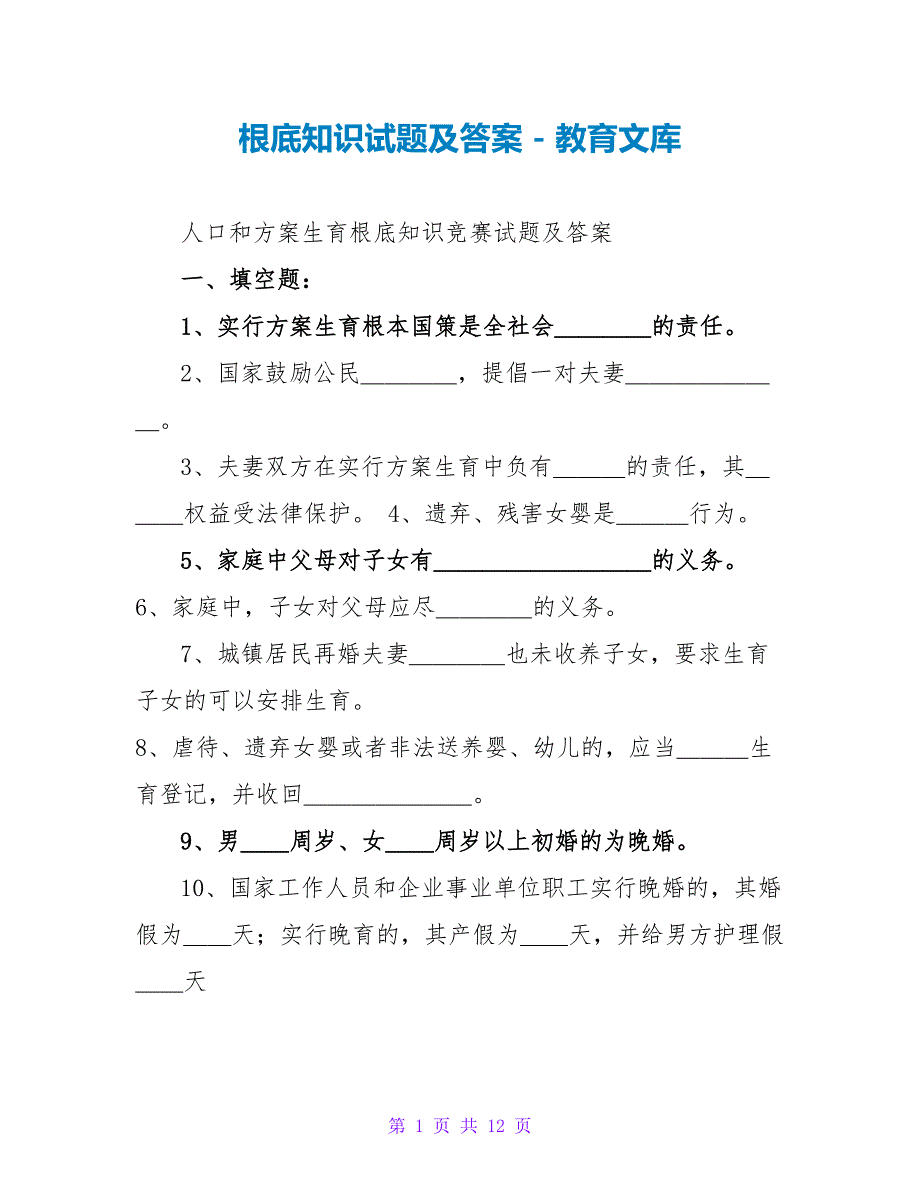 根底知识试题及答案 - 教育文库
人口和方案生育根底知识竞赛试题及答案
一、填空题：
1、实行方案生育根本国策是全社会________的责任。
2、国家鼓励公民________，提倡一对夫妻____________
__。
3、夫妻双方在实行方案生育中负有______的责任，其__
____权益受法律保护。 4、遗弃、残害女婴是______行为。
5、家庭中父母对子女有__________________的义务。
6、家庭中，子女对父母应尽________的义务。
7、城镇居民再婚夫妻________也未收养子女，要求生育
子女的可以安排生育。
8、虐待、遗弃女婴或者非法送养婴、幼儿的，应当______生
育登记，并收回______________。
9、男____周岁、女____周岁以上初婚的为晚婚。
10、国家工作人员和企业事业单位职工实行晚婚的，其婚
假为____天；实行晚育的，其产假为____天，并给男方护理假
____天
第 1 页 共 12 页